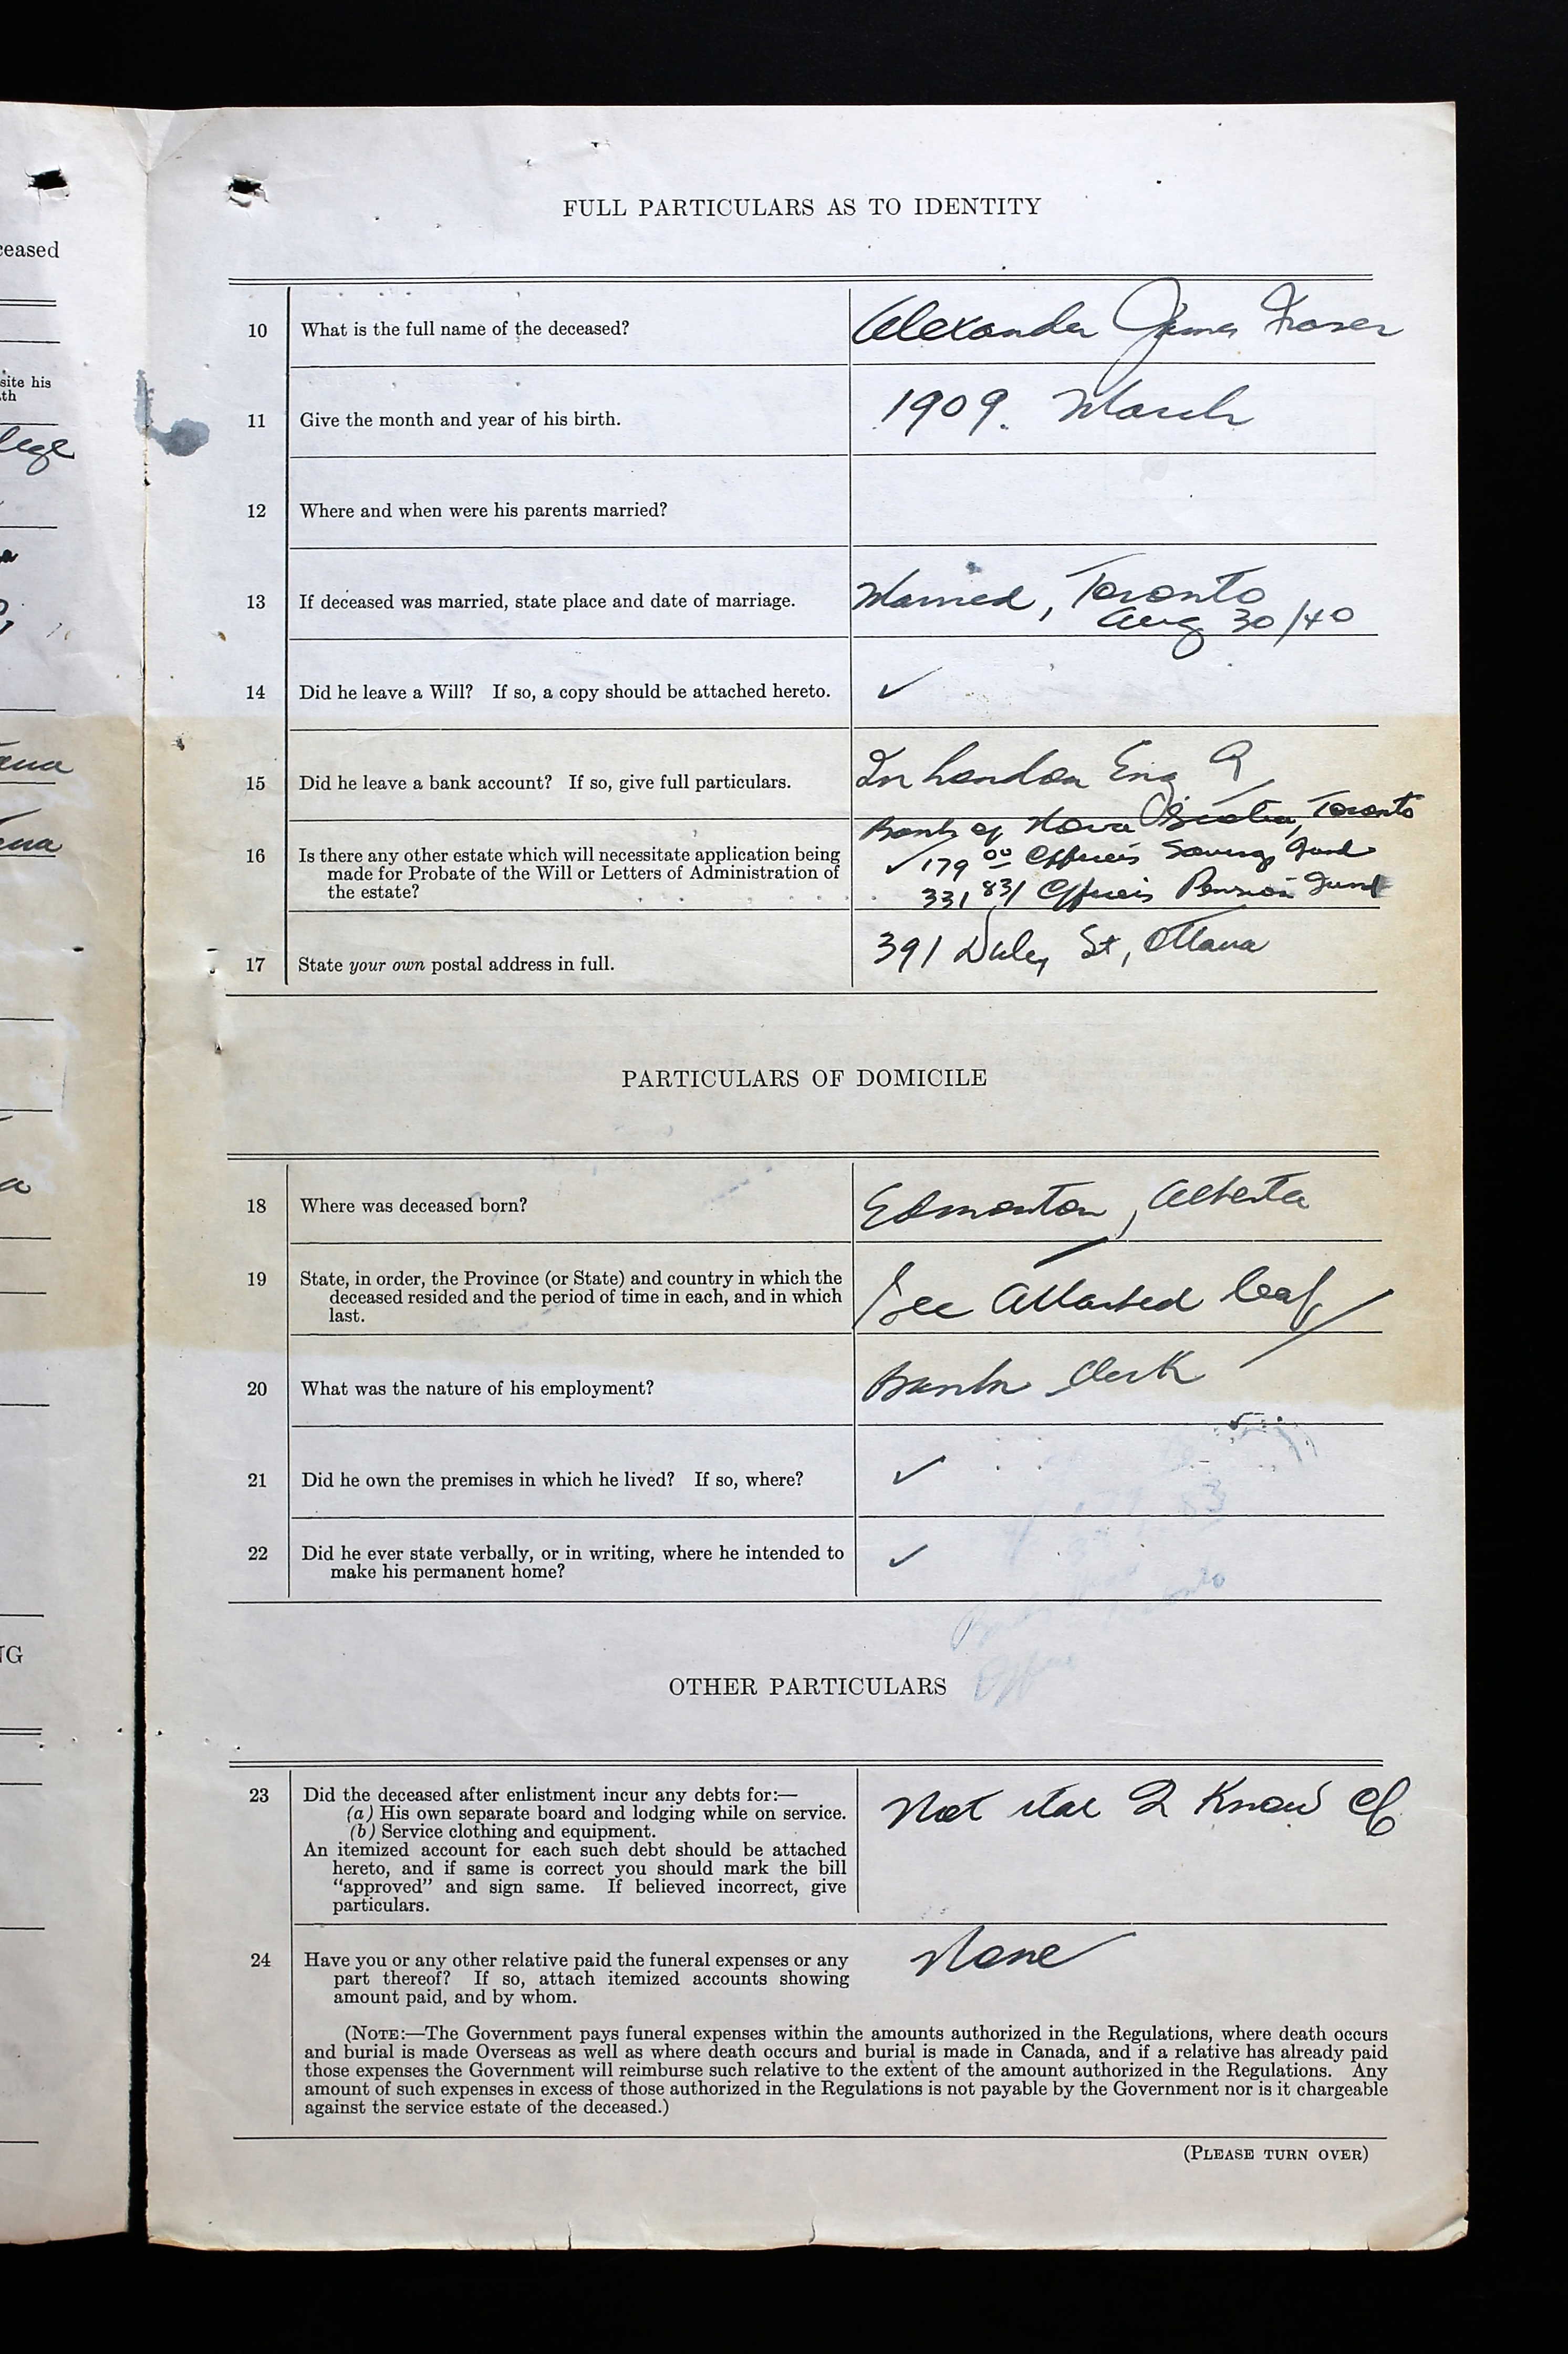 ceased
site his
th
lege
NG
FULL PARTICULARS AS TO IDENTITY
10 What is the full name of the deceased? Alexander James Fraser
11 Give the month and year of his birth. 1909. March
12 Where and when were his parents married?
13 If deceased was married, state place and date of marriage. Married, Toronto
Aug 30/40
14 Did he leave a Will? If so, a copy should be attached hereto. ✓
15 Did he leave a bank account? If so, give full particulars. In London Eng ?
Bank of Nova Scotia, Toronto
16 Is there any other estate which will necessitate application being ✓ 179 00 Officers Savings Fund
made for Probate of the Will or Letters of Administration of
the estate? 331 83/ Officers Pension Fund
17 State your own postal address in full. 391 Daly St, Ottawa
PARTICULARS OF DOMICILE
18 Where was deceased born? Edmonton, Alberta
19 State, in order, the Province (or State) and country in which the
deceased resided and the period of time in each, and in which See Attached leaf
last.
20 What was the nature of his employment? Bank Clerk
21 Did he own the premises in which he lived? If so, where? ✓
22 Did he ever state verbally, or in writing, where he intended to ✓
make his permanent home?
OTHER PARTICULARS
23 Did the deceased after enlistment incur any debts for:—
(a) His own separate board and lodging while on service. Not that I Know of
(b) Service clothing and equipment.
An itemized account for each such debt should be attached
hereto, and if same is correct you should mark the bill
“approved” and sign same. If believed incorrect, give
particulars.
24 Have you or any other relative paid the funeral expenses or any None
part thereof? If so, attach itemized accounts showing
amount paid, and by whom.
(NOTE:—The Government pays funeral expenses within the amounts authorized in the Regulations, where death occurs
and burial is made Overseas as well as where death occurs and burial is made in Canada, and if a relative has already paid
those expenses the Government will reimburse such relative to the extent of the amount authorized in the Regulations. Any
amount of such expenses in excess of those authorized in the Regulations is not payable by the Government nor is it chargeable
against the service estate of the deceased.)
(PLEASE TURN OVER)